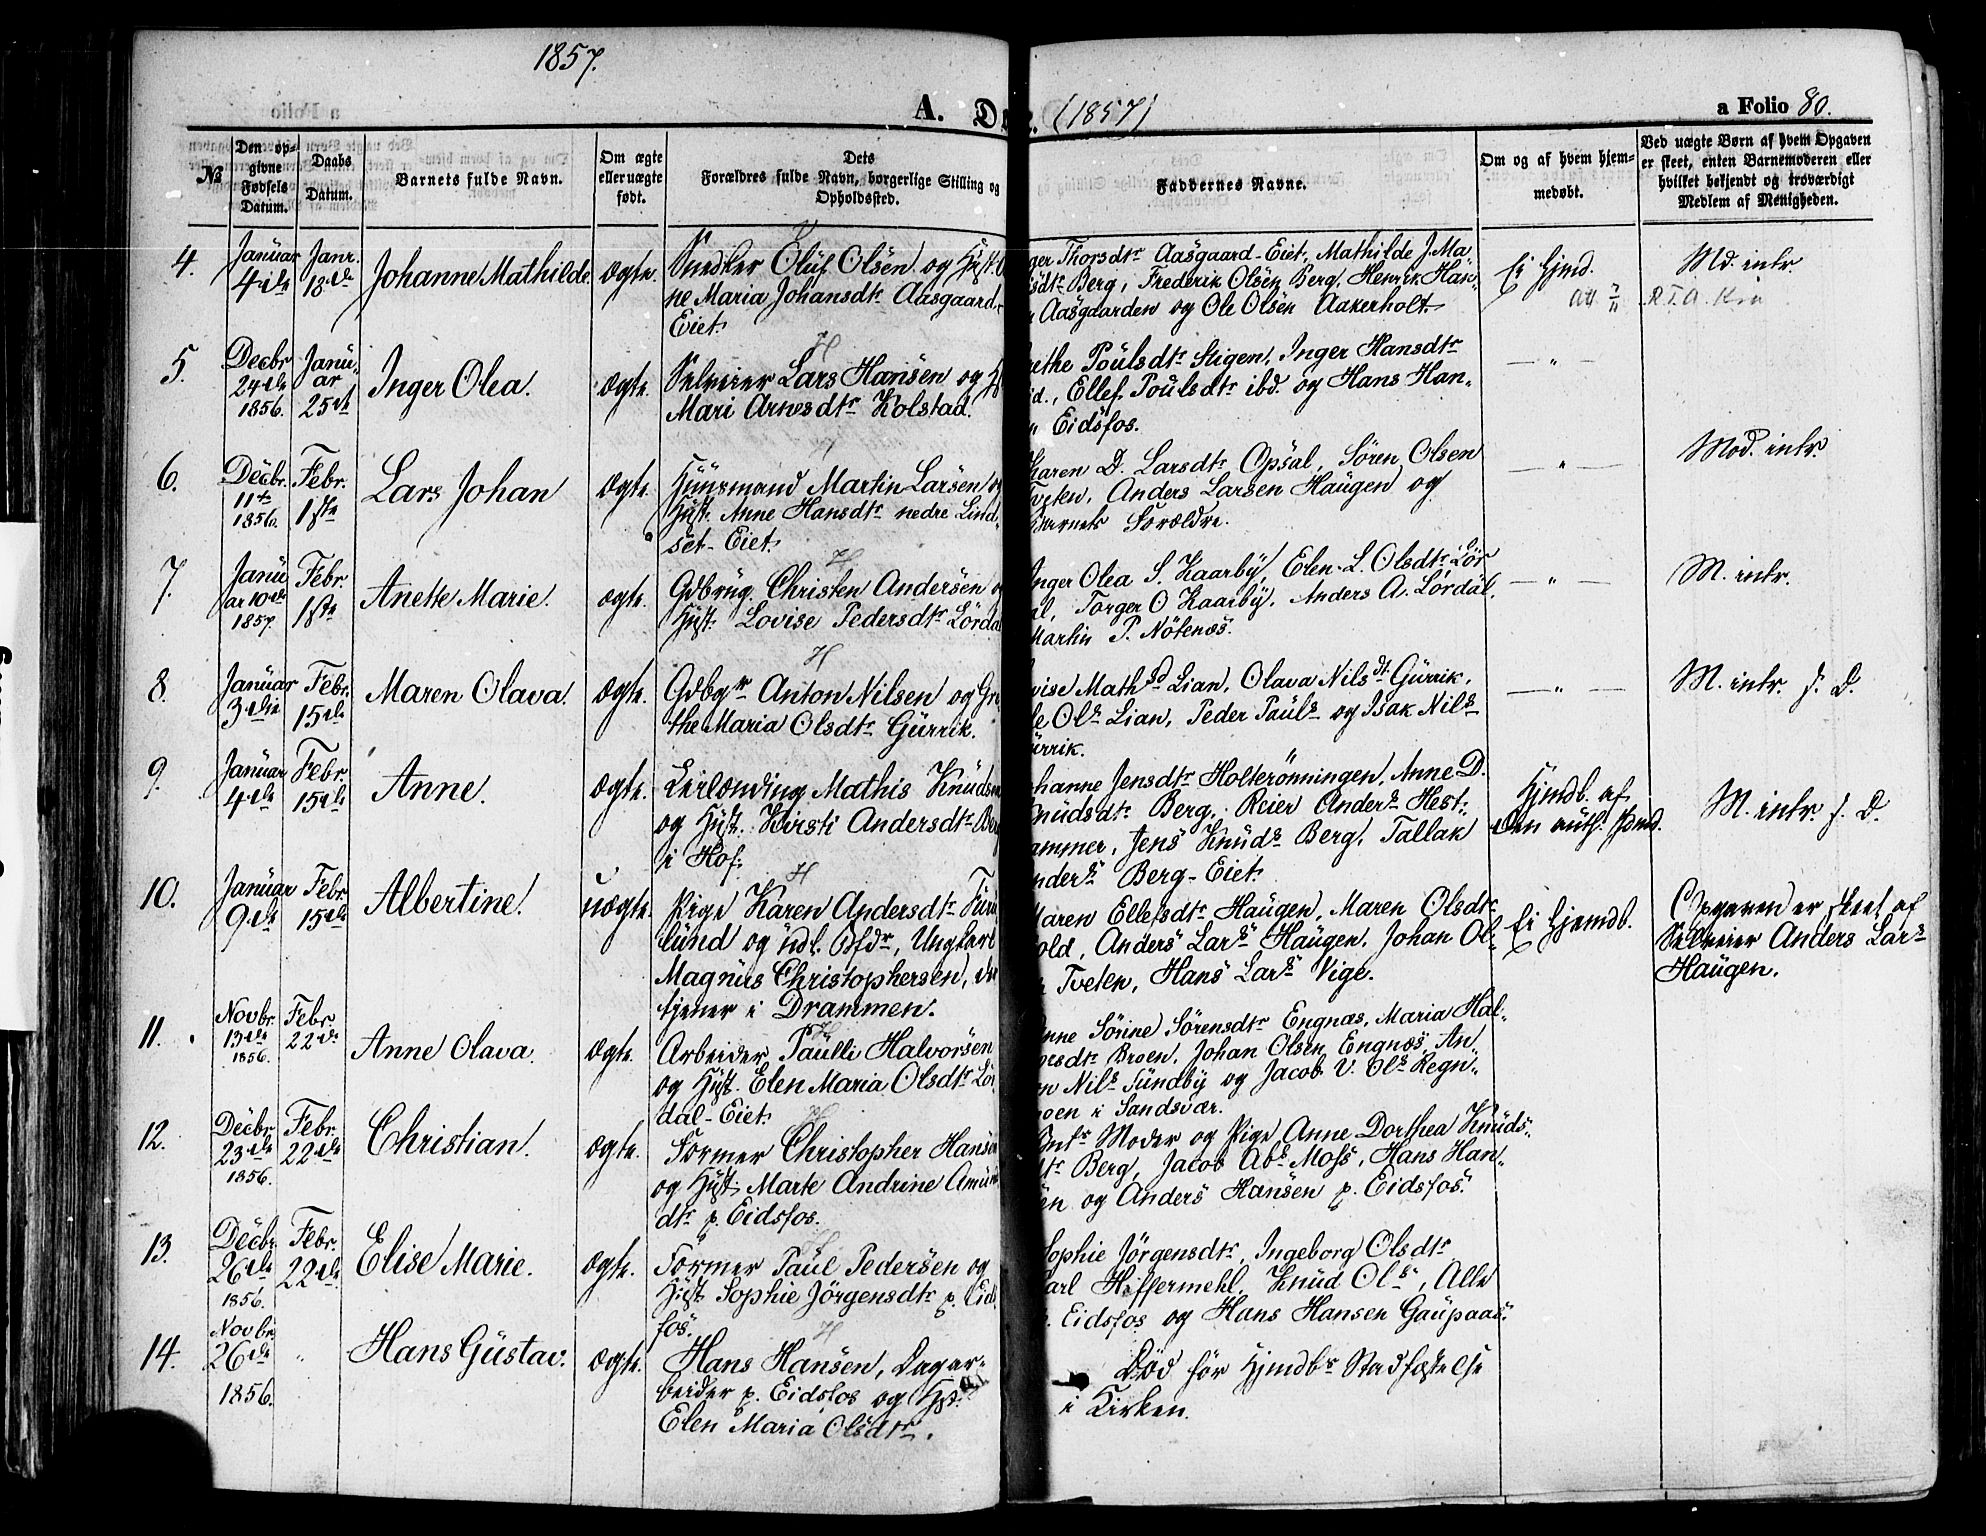 1857.
A. Daabte. (1857)
a Folio 80.
№
Den opgivne Fødsels Datum.
Daabs Datum.
Barnets fulde Navn.
Om ægte eller uægte født.
Dets Forældres fulde Navn, borgerlige Stilling og Opholdssted.
Faddernes Navne.
Om og af hvem hjemmedøbt.
Ved uægte Børn af hvem Opgaven er skeet, enten Barnemoderen eller hvilket bekjendt og troværdigt Medlem af Menigheden.
4.
Januar
4de
Janr.
18de
Johanne Mathilde.
ægte.
Snedker Oluf Olsen og Hust.
ne Maria Johansdtr Aasgaard-
Eiet.
ger Thorsdtr Aasgaard-Eiet, Mathilde J. Ma
sdtr Berg, Frederik Olsen Berg, Henrik Han
Aasgaarden og Ole Olsen Aakerholt.
Ei hjmd.
Md. intr.
5.
Decbr
24de
1856.
Janu-
ar
25de
Inger Olea.
ægte.
Selveier Lars Hansen og H
Mari Arnesdtr Kolstad.
ethe Poulsdtr Stigen, Inger Hansdtr
id., Ellef Poulsdtr ibd. og Hans Han-
Eidsfos.
— " —
6.
Decbr.
11te
1856.
Febr.
1ste
Lars Johan
ægte.
Huusmand Martin Larsen og
Hust. Anne Hansdtr nedre Lind-
set-Eiet.
Karen D. Larsdtr Opsal, Sören Olsen
Tveten, Anders Larsen Haugen og
Barnets Forældre.
— " —
Mod. intr.
7.
Janu
ar 10de
1857.
Febr.
1ste
Anette Marie.
ægte.
Gdbrug. Christen Andersen o
Hust. Lovise Pedersdtr Lördal
Inger Olea S. Kaarby, Elen L. Olsdtr Lör
al, Torger O Kaarby, Anders A. Lördal,
Martin P. Nötenæs.
— " —
M. intr.
8.
Januar
3die
Febr.
15de
Maren Olava.
ægte.
Gdbgr Anton Nilsen og Gre
the Maria Olsdtr Gurrik.
vise Mathsd Lian, Olava Nilsdt. Gurrik,
le Ols Lian, Peder Pauls og Isak Nils
urrik.
— " —
M. intr. s. D.
9.
Januar
4de
Febr.
15de
Anne.
ægte.
Leilænding Mathis Knudsen
og Hust. Kirsti Andersdtr Berg
i Hof.
ohanne Jensdtr Holterönningen, Anne D.
nudsdtr Berg, Reier Anders Hest-
ammer, Jens Knuds Berg, Tallak
nders Berg-Eiet.
Hjmdb. af
M. intr. s. D.
10.
Januar
9de
Febr.
15de
Albertine.
uægte.
Pige Karen Andersdtr Furu
lund og udl. Bfdr., Ungkarl
Magnus Christophersen, der
tjener i Drammen.
Maren Ellefsdtr Haugen, Maren Olsdtr
old, Anders Lars Haugen, Johan Ol-
Tveten, Hans Lars Vige.
Ei hjemdb.
Opgaven er skeet af
Selveier Anders Lars
Haugen.
11.
Novbr.
13de
1856.
Febr.
22de
Anne Olava.
ægte.
Arbeider Paulli Halvorsen
og Hust. Elen Maria Olsdtr Lör
dal-Eiet.
nne Sörine Sörensdtr Engnæs, Maria Hal-
orsdtr Broen, Johan Olsen Engnæs, An
Nils Sundby og Jacob V. Ols Regn-
moen i Sandsvær.
12.
Decbr.
23de
1856.
Febr.
22de
Christian.
ægte.
Former Christopher Hansen
og Hust. Marte Andrine Amund
dtr p. Eidsfos.
Moder og Pige Anne Dorthea Knuds-
dtr Berg, Jacob Abs Moss, Hans Han-
en og Anders Hansen p. Eidsfos.
13.
Decbr.
26de
1856.
Febr.
22de
Elise Marie.
ægte.
Former Paul Pedersen og
Hust. Sophie Jörgensdtr p. Eids
fos.
Sophie Jörgensdtr, Ingeborg Olsdtr
Carl Hiffermehl, Knud Ols, Alle
p. Eidsfos og Hans Hansen Gaupaas.
14.
Novbr.
26de
1856.
"
Hans Gustav.
ægte.
Hans Hansen, Dagar-
beider p. Eidsfos og Hst.
Elen Maria Olsdtr.
Död för Hjmdbs Stadfæstelse
i Kirken.